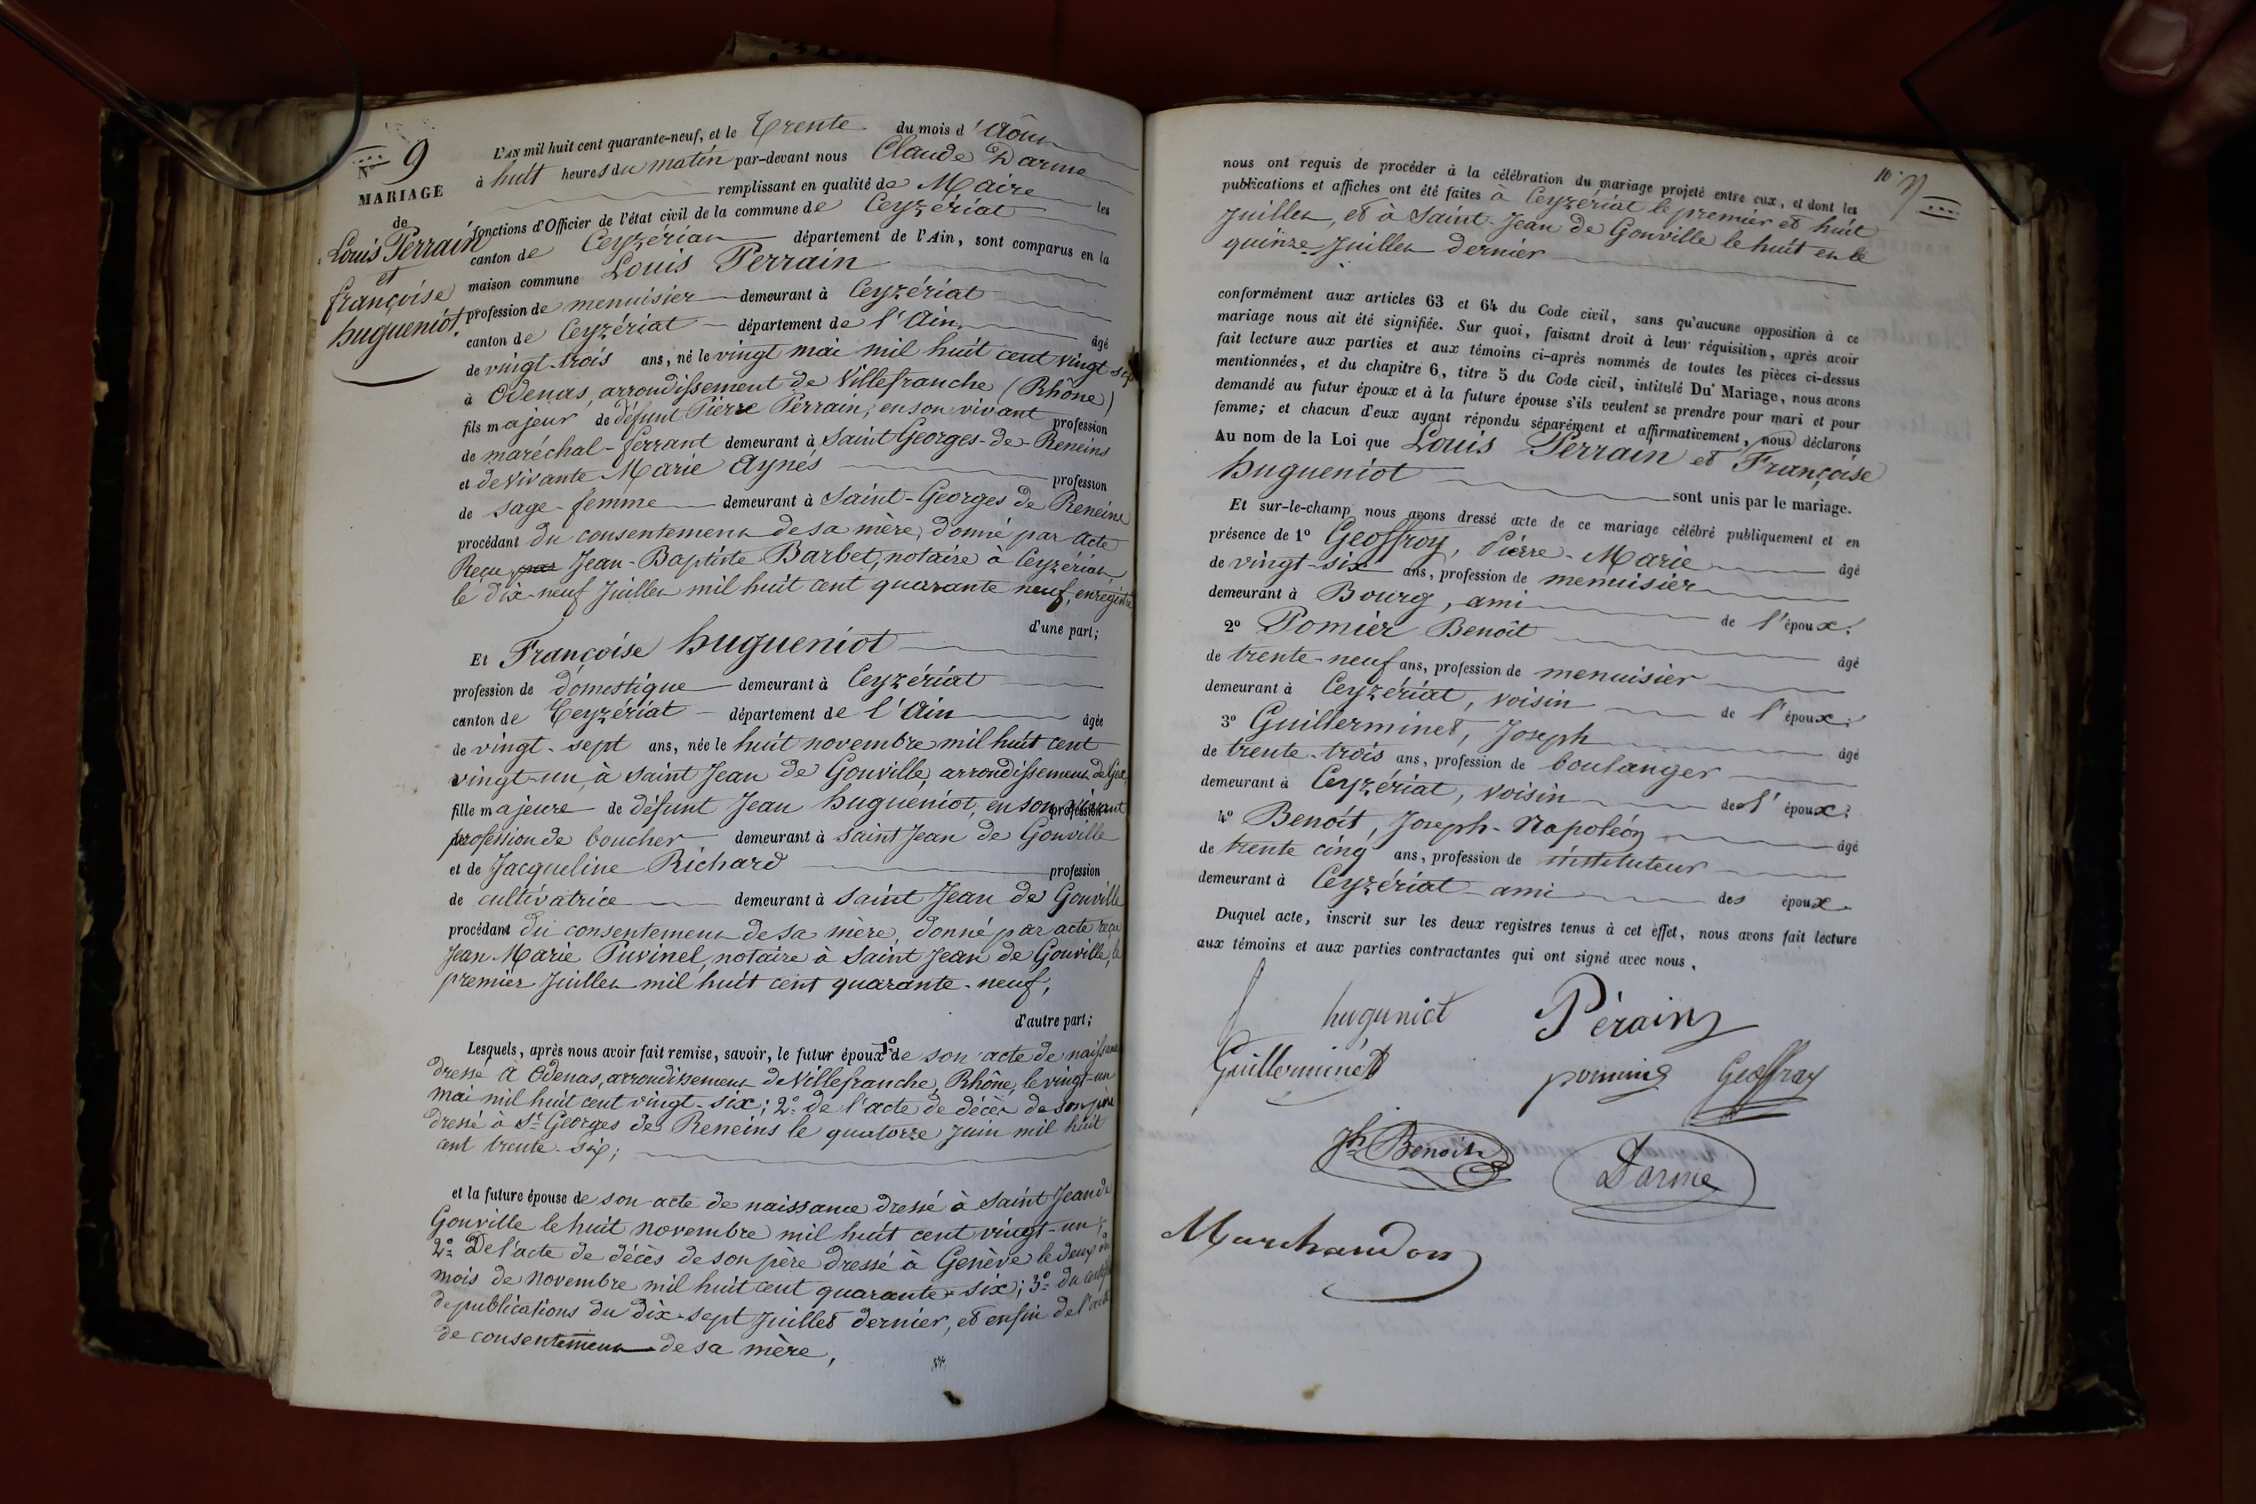 N° 9
MARIAGE
de
Louis Perrain
et
françoise
hugueniot.
L'AN mil huit cent quarante-neuf, et le Trente du mois d'Aôut
à huit heures du matin par-devant nous Claude Darme
remplissant en qualité de Maire les
fonctions d'Officier de l'état civil de la commune de Ceyzériat
canton de Ceyzériat département de l'Ain, sont comparus en la
maison commune Louis Perrain
profession de menuisier demeurant à Ceyzériat
canton de Ceyzériat département de l'Ain âgé
de vingt-trois ans, né le vingt mai mil huit cent vingt six
à Odenas, arrondissement de Villefranche (Rhône)
fils majeur de défunt Pierre Perrain, en son vivant profession
de maréchal-ferrant demeurant à Saint Georges-de-Reneins
et de vivante Marie Aynés profession
de sage-femme demeurant à Saint-Georges de Reneins
procédant du consentement de sa mère, donné par acte
Reçu par Jean-Baptiste Barbet, notaire à Ceyzériat
le dix-neuf Juillet mil huit cent quarante neuf, enrégistré
d'une part;
Et Françoise hugueniot
profession de domestique demeurant à Ceyzériat
canton de Ceyzériat département de l'Ain âgée
de vingt-sept ans, née le huit novembre mil huit cent
vingt-un, à Saint Jean de Gonville, arrondissement de Gex,
fille majeure de défunt Jean hugueniot, en son vivant profession
profession de boucher demeurant à Saint Jean de Gonville
et de Jacqueline Richard profession
de cultivatrice demeurant à Saint Jean de Gonville
procédant du consentement de sa mère, donné par acte reçu
Jean-Marie Puvinel, notaire à Saint Jean de Gonville, le
premier Juillet mil huit cent quarante-neuf;
d'autre part;
Lesquels, après nous avoir fait remise, savoir, le futur époux 1° de son acte de naissance
dressé à Odenas, arrondissement de Villefranche, Rhône, le vingt-un
mai mil huit cent vingt-six; 2° de l'acte de décès de son père
dressé à St Georges de Reneins le quatorze Juin mil huit
cent trente-six;
et la future épouse de son acte de naissance dressé à Saint Jean de
Gonville le huit novembre mil huit cent vingt-un;
2° De l'acte de décès de son père dressé à Genève le deux du
mois de novembre mil huit cent quarante-six; 3° du
de publications du dix-sept Juillet dernier, et enfin de l'acte
de consentement de sa mère,
10
nous ont requis de procéder à la célébration du mariage projeté entre eux, et dont les
publications et affiches ont été faites à Ceyzériat le premier et huit
Juillet, et à Saint-Jean de Gonville le huit et le
quinze Juillet dernier
conformément aux articles 63 et 64 du Code civil, sans qu'aucune opposition à ce
mariage nous ait été signifiée. Sur quoi, faisant droit à leur réquisition, après avoir
fait lecture aux parties et aux témoins ci-après nommés de toutes les pièces ci-dessus
mentionnées, et du chapitre 6, titre 5 du Code civil, intitulé Du Mariage, nous avons
demandé au futur époux et à la future épouse s'ils veulent se prendre pour mari et pour
femme; et chacun d'eux ayant répondu séparément et affirmativement, nous déclarons
Au nom de la Loi que Louis Perrain et Françoise
hugueniot sont unis par le mariage.
Et sur-le-champ nous avons dressé acte de ce mariage célébré publiquement et en
présence de 1° Geoffroy, Pierre-Marie âgé
de vingt-six ans, profession de menuisier
demeurant à Bourg, ami de l'époux.
2° Pomier Benoît âgé
de trente-neuf ans, profession de menuisier
demeurant à Ceyzériat, voisin de l'époux.
3° Guillerminet, Joseph âgé
de trente-trois ans, profession de boulanger
demeurant à Ceyzériat, voisin de l'époux.
4° Benoît, Joseph-Napoléon âgé
de trente cinq ans, profession de instituteur
demeurant à Ceyzériat ami des époux
Duquel acte, inscrit sur les deux registres tenus à cet effet, nous avons fait lecture
aux témoins et aux parties contractantes qui ont signé avec nous.
f huguniot Pérain
Guillerminet Geoffray
Jh Benoit Darme
Marchandon